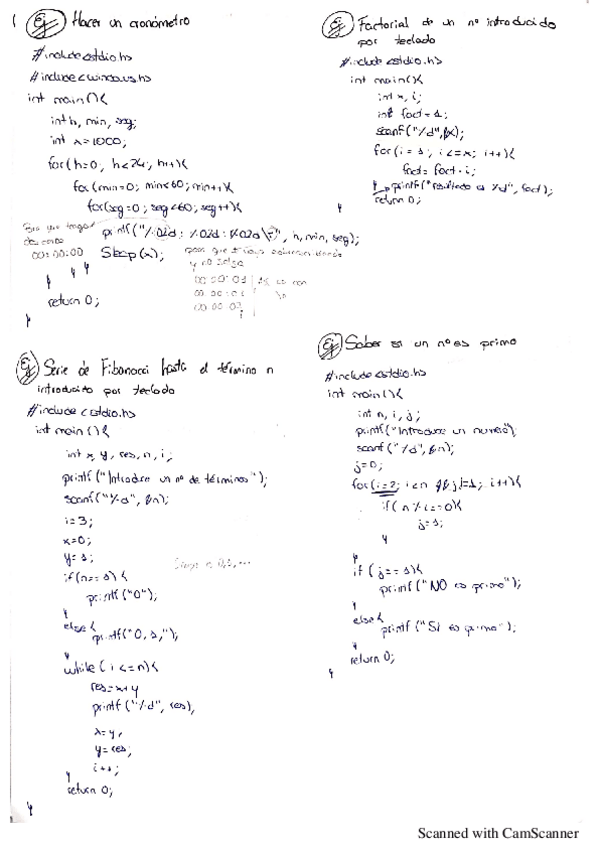 Ej Hacer un cronómetro
#include <stdio.h>
#include <windows.h>
int main(){
int h, min, seg;
int x=1000;
for(h=0; h<24; h++){
for(min=0; min<60; min++){
for(seg=0; seg<60; seg++){
printf("%02d: %02d: %02d\r", h, min, seg);
00:00:00
Sleep(x);
y no salga
00:00:01
00:00:02
00:00:03
\n
} } }
return 0;
}
Ej Factorial de un nº introducido
por teclado
#include <stdio.h>
int main(){
int x, i;
int fact = 1;
scanf("%d",&x);
for(i = 1; i<=x; i++){
fact = fact · i;
} printf("resultado es %d", fact);
return 0;
}
Ej Serie de Fibonacci hasta el término n
introducido por teclado
#include <stdio.h>
int main(){
int x, y, res, n, i;
printf("Introduce un nº de términos");
scanf("%d", &n);
i=3;
x=0;
y=1;
if(n==1){
printf("0");
}
else{
printf("0,1,");
}
while(i<=n){
res=x+y
printf("%d", res);
x=y;
y=res;
i++;
}
return 0;
}
Ej Saber si un nº es primo
#include <stdio.h>
int main(){
int n, i, j;
printf("Introduce un numero");
scanf("%d", &n);
j=0;
for(i=2; i<n && j!=1; i++){
if(n%i==0){
j=1;
}
}
if(j==1){
printf("NO es primo");
}
else{
printf("SI es primo");
}
return 0;
}
Scanned with CamScanner